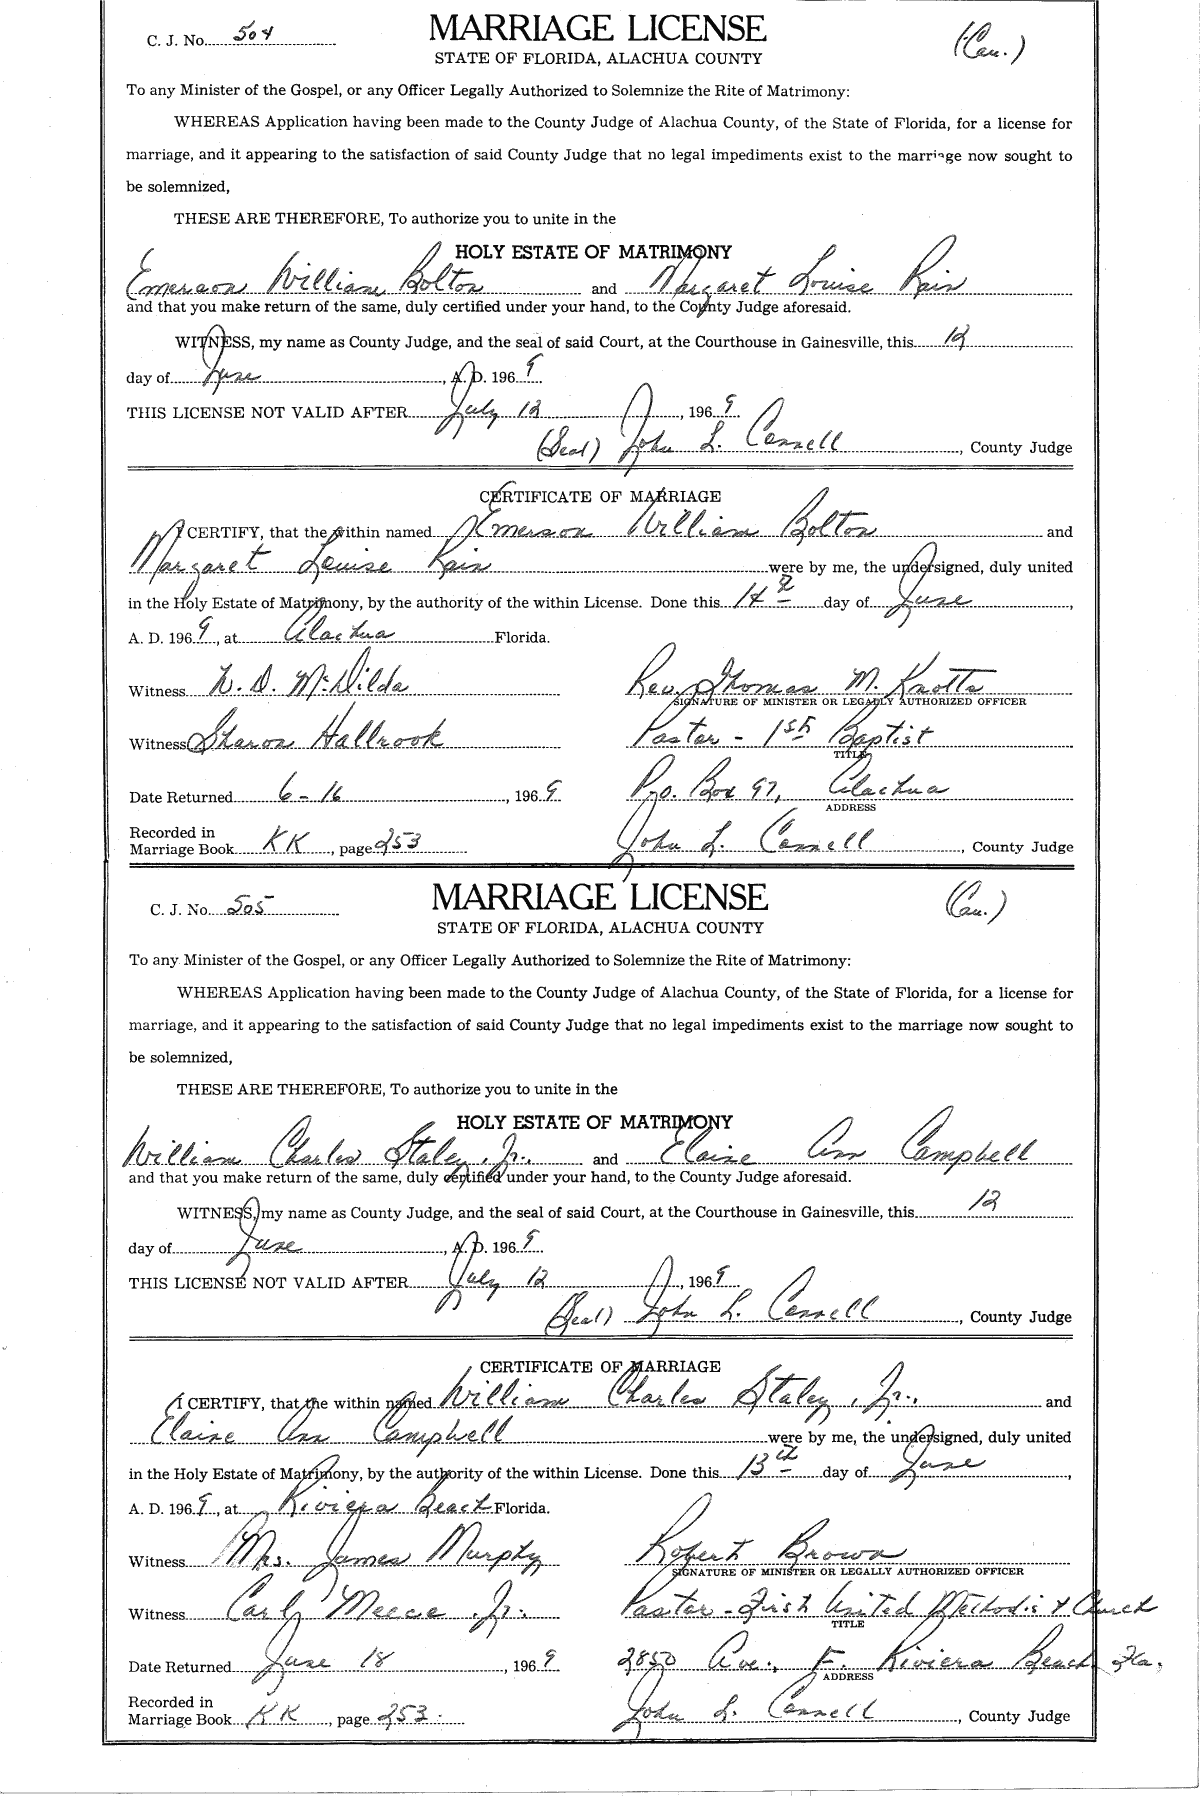 C. J. No. 504
MARRIAGE LICENSE
(Cau.)
STATE OF FLORIDA, ALACHUA COUNTY
To any Minister of the Gospel, or any Officer Legally Authorized to Solemnize the Rite of Matrimony:
WHEREAS Application having been made to the County Judge of Alachua County, of the State of Florida, for a license for
marriage, and it appearing to the satisfaction of said County Judge that no legal impediments exist to the marriage now sought to
be solemnized,
THESE ARE THEREFORE, To authorize you to unite in the
HOLY ESTATE OF MATRIMONY
Emerson William Bolton and Margaret Louise Rain
and that you make return of the same, duly certified under your hand, to the County Judge aforesaid.
WITNESS, my name as County Judge, and the seal of said Court, at the Courthouse in Gainesville, this 12
day of June, A. D. 1969
THIS LICENSE NOT VALID AFTER July 12, 1969
(Seal) John L. Connell, County Judge
CERTIFICATE OF MARRIAGE
I CERTIFY, that the within named Emerson William Bolton and
Margaret Louise Rain were by me, the undersigned, duly united
in the Holy Estate of Matrimony, by the authority of the within License. Done this 14th day of June,
A. D. 1969, at Alachua Florida.
Witness L. D. McDilda Rev. Thomas M. Knotts
SIGNATURE OF MINISTER OR LEGALLY AUTHORIZED OFFICER
Witness Sharon Hallrook Pastor - 1st Baptist
TITLE
Date Returned 6-16, 1969 P.O. Box 97, Alachua
ADDRESS
Recorded in
Marriage Book KK, page 253 John L. Connell, County Judge
C. J. No. 505
MARRIAGE LICENSE
(Cau.)
STATE OF FLORIDA, ALACHUA COUNTY
To any Minister of the Gospel, or any Officer Legally Authorized to Solemnize the Rite of Matrimony:
WHEREAS Application having been made to the County Judge of Alachua County, of the State of Florida, for a license for
marriage, and it appearing to the satisfaction of said County Judge that no legal impediments exist to the marriage now sought to
be solemnized,
THESE ARE THEREFORE, To authorize you to unite in the
HOLY ESTATE OF MATRIMONY
William Charles Staley, Jr. and Elaine Ann Campbell
and that you make return of the same, duly certified under your hand, to the County Judge aforesaid.
WITNESS, my name as County Judge, and the seal of said Court, at the Courthouse in Gainesville, this 12
day of June, A. D. 1969
THIS LICENSE NOT VALID AFTER July 12, 1969
(Seal) John L. Connell, County Judge
CERTIFICATE OF MARRIAGE
I CERTIFY, that the within named William Charles Staley, Jr., and
Elaine Ann Campbell were by me, the undersigned, duly united
in the Holy Estate of Matrimony, by the authority of the within License. Done this 13th day of June,
A. D. 1969, at Riviera Beach Florida.
Witness Mrs. James Murphy Robert Brown
SIGNATURE OF MINISTER OR LEGALLY AUTHORIZED OFFICER
Witness Carl Meece, Jr. Pastor - First United Methodist Church
TITLE
Date Returned June 18, 1969 2850 Ave. F. Riviera Beach, Fla.
ADDRESS
Recorded in
Marriage Book KK, page 253. John L. Connell, County Judge